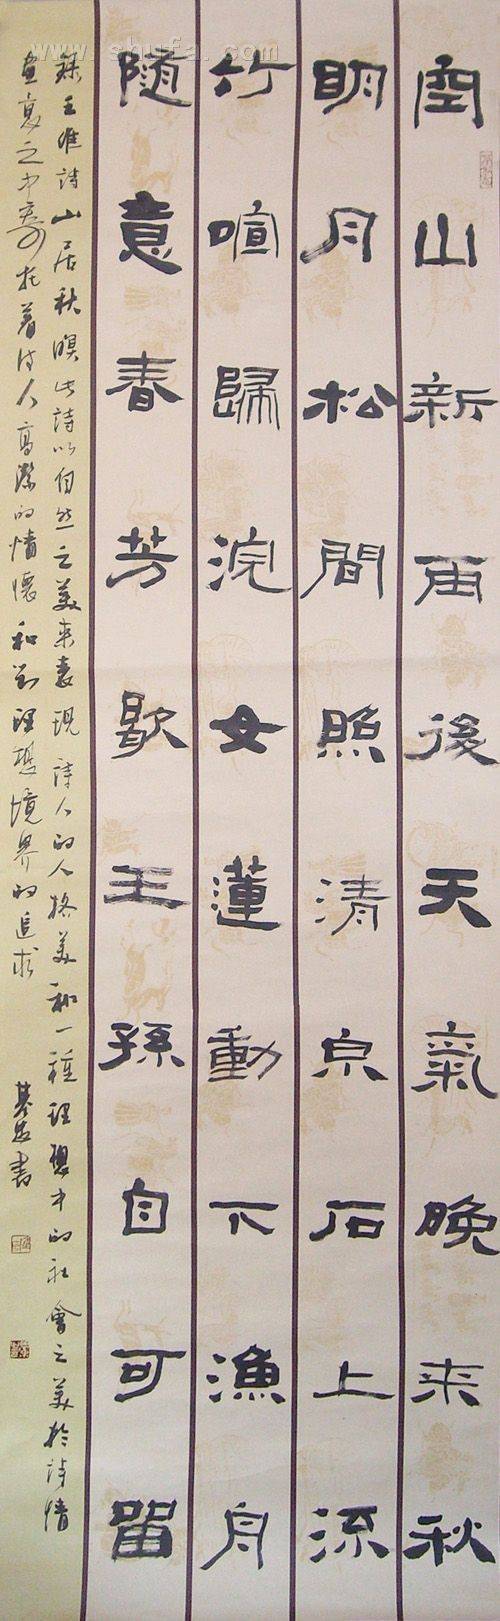 www.shufa.com
空山新雨後天氣晚來秋
明月松間照清泉石上流
竹喧歸浣女蓮動下漁舟
随意春芳歇王孫自可留
録王維詩山居秋暝此詩以自然之美来表現詩人的人格美和一種理想中的社會之美於詩情
畫意之中寄托着诗人高潔的情懷和對理想境界的追求
書